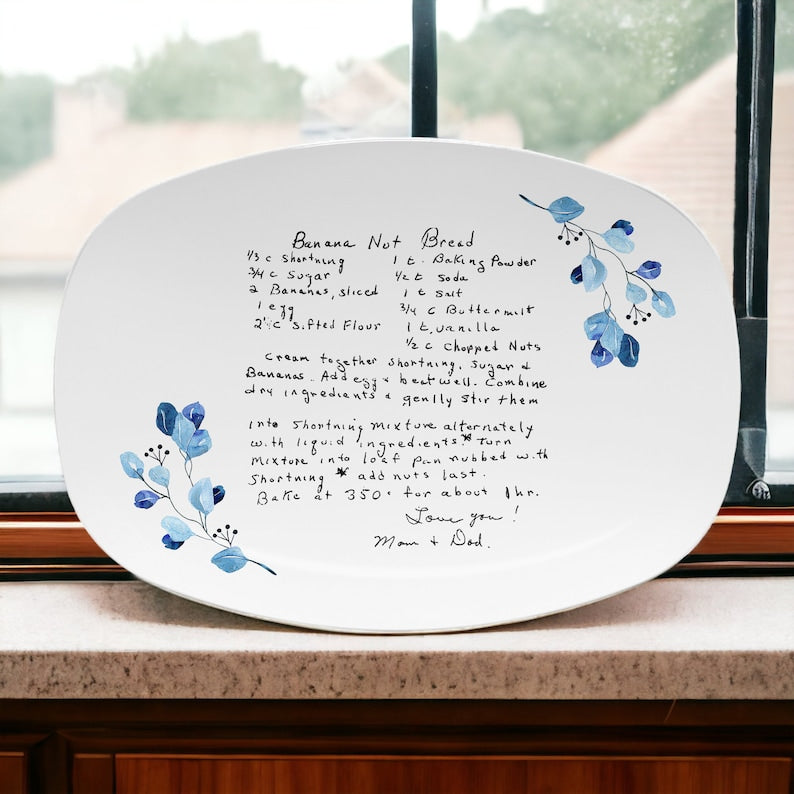 Banana Nut Bread
1/3 c shortning
3/4 c Sugar
2 Bananas, sliced
1 egg
2 c Sifted Flour
1 t. Baking Powder
1/2 t Soda
1 t Salt
3/4 c Buttermilt
1 t. vanilla
1/2 c Chopped Nuts
Cream together shortning, Sugar &
Bananas. Add egg & beat well. Combine
dry ingredients & gently Stir them
into Shortning mixture alternately
with liquid ingredients.* Turn
mixture into loaf pan rubbed with
Shortning * add nuts last.
Bake at 350° for about 1 hr.
Love you!
Mom & Dad.